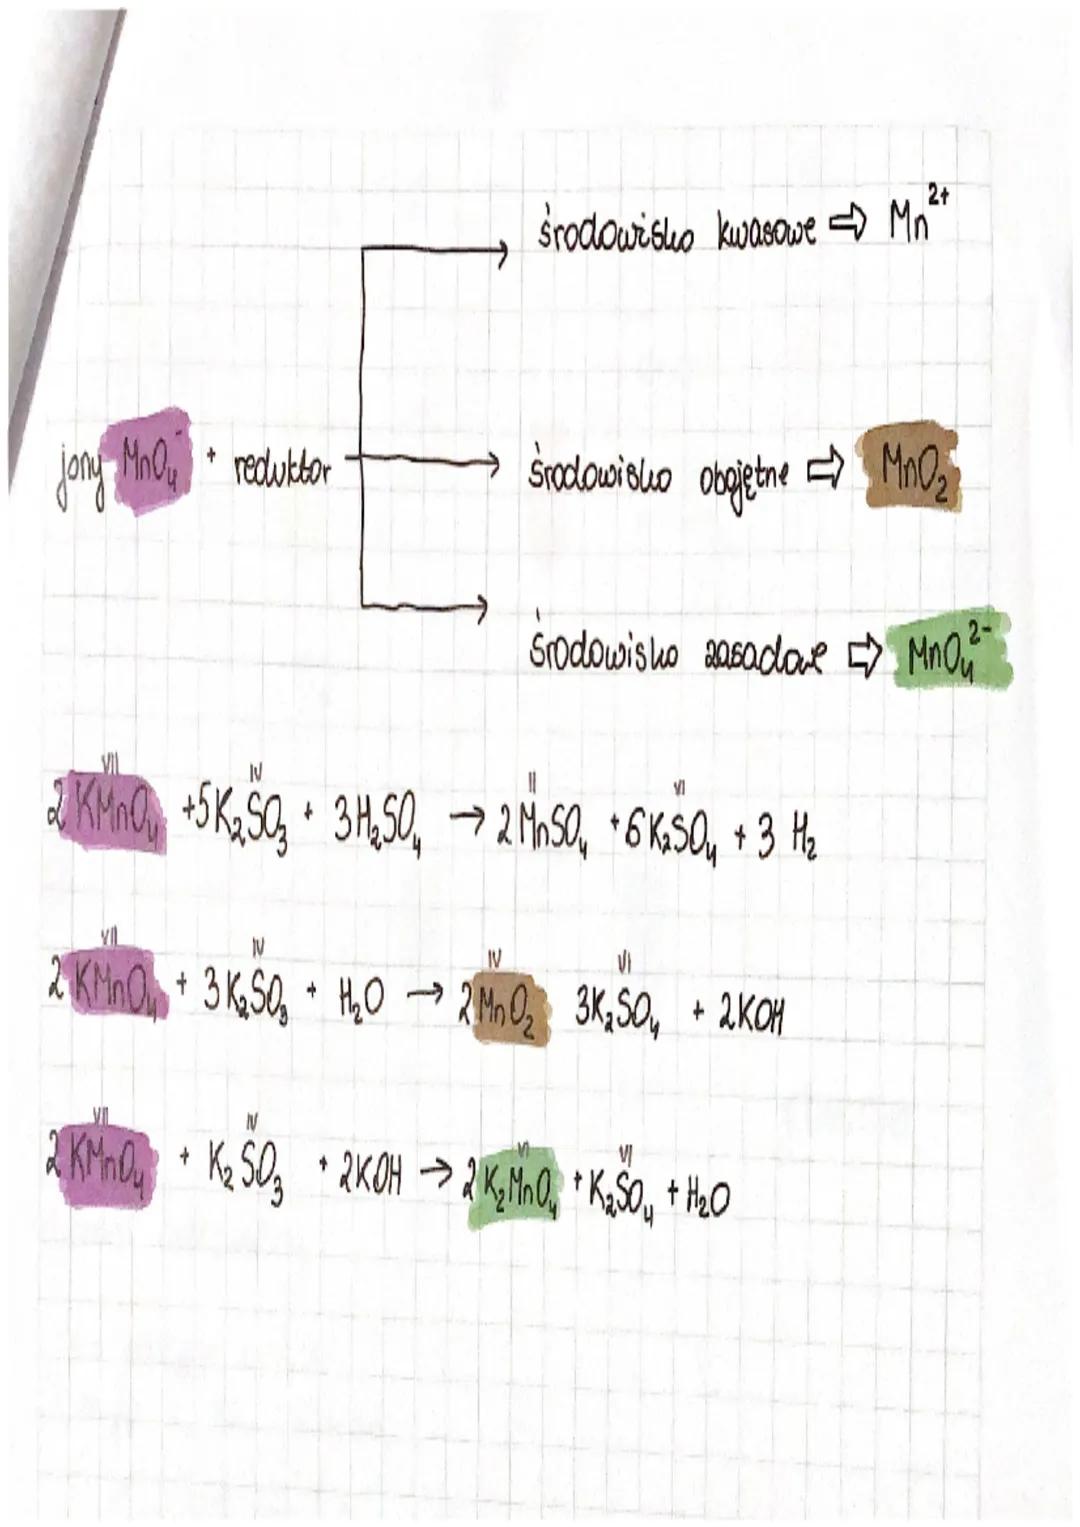 środowisko kwasowe ⇨ Mn²⁺
jony MnO₄⁻ + reduktor → środowisko obojętne ⇨ MnO₂
środowisko zasadowe ⇨ MnO₄²⁻
VII IV II VI
2 KMnO₄ + 5K₂SO₃ + 3H₂SO₄ → 2 MnSO₄ + 6K₂SO₄ + 3 H₂
VII IV IV VI
2 KMnO₄ + 3K₂SO₃ + H₂O → 2 MnO₂ 3K₂SO₄ + 2KOH
VII IV VI VI
2 KMnO₄ + K₂SO₃ + 2KOH → 2 K₂MnO₄ + K₂SO₄ + H₂O